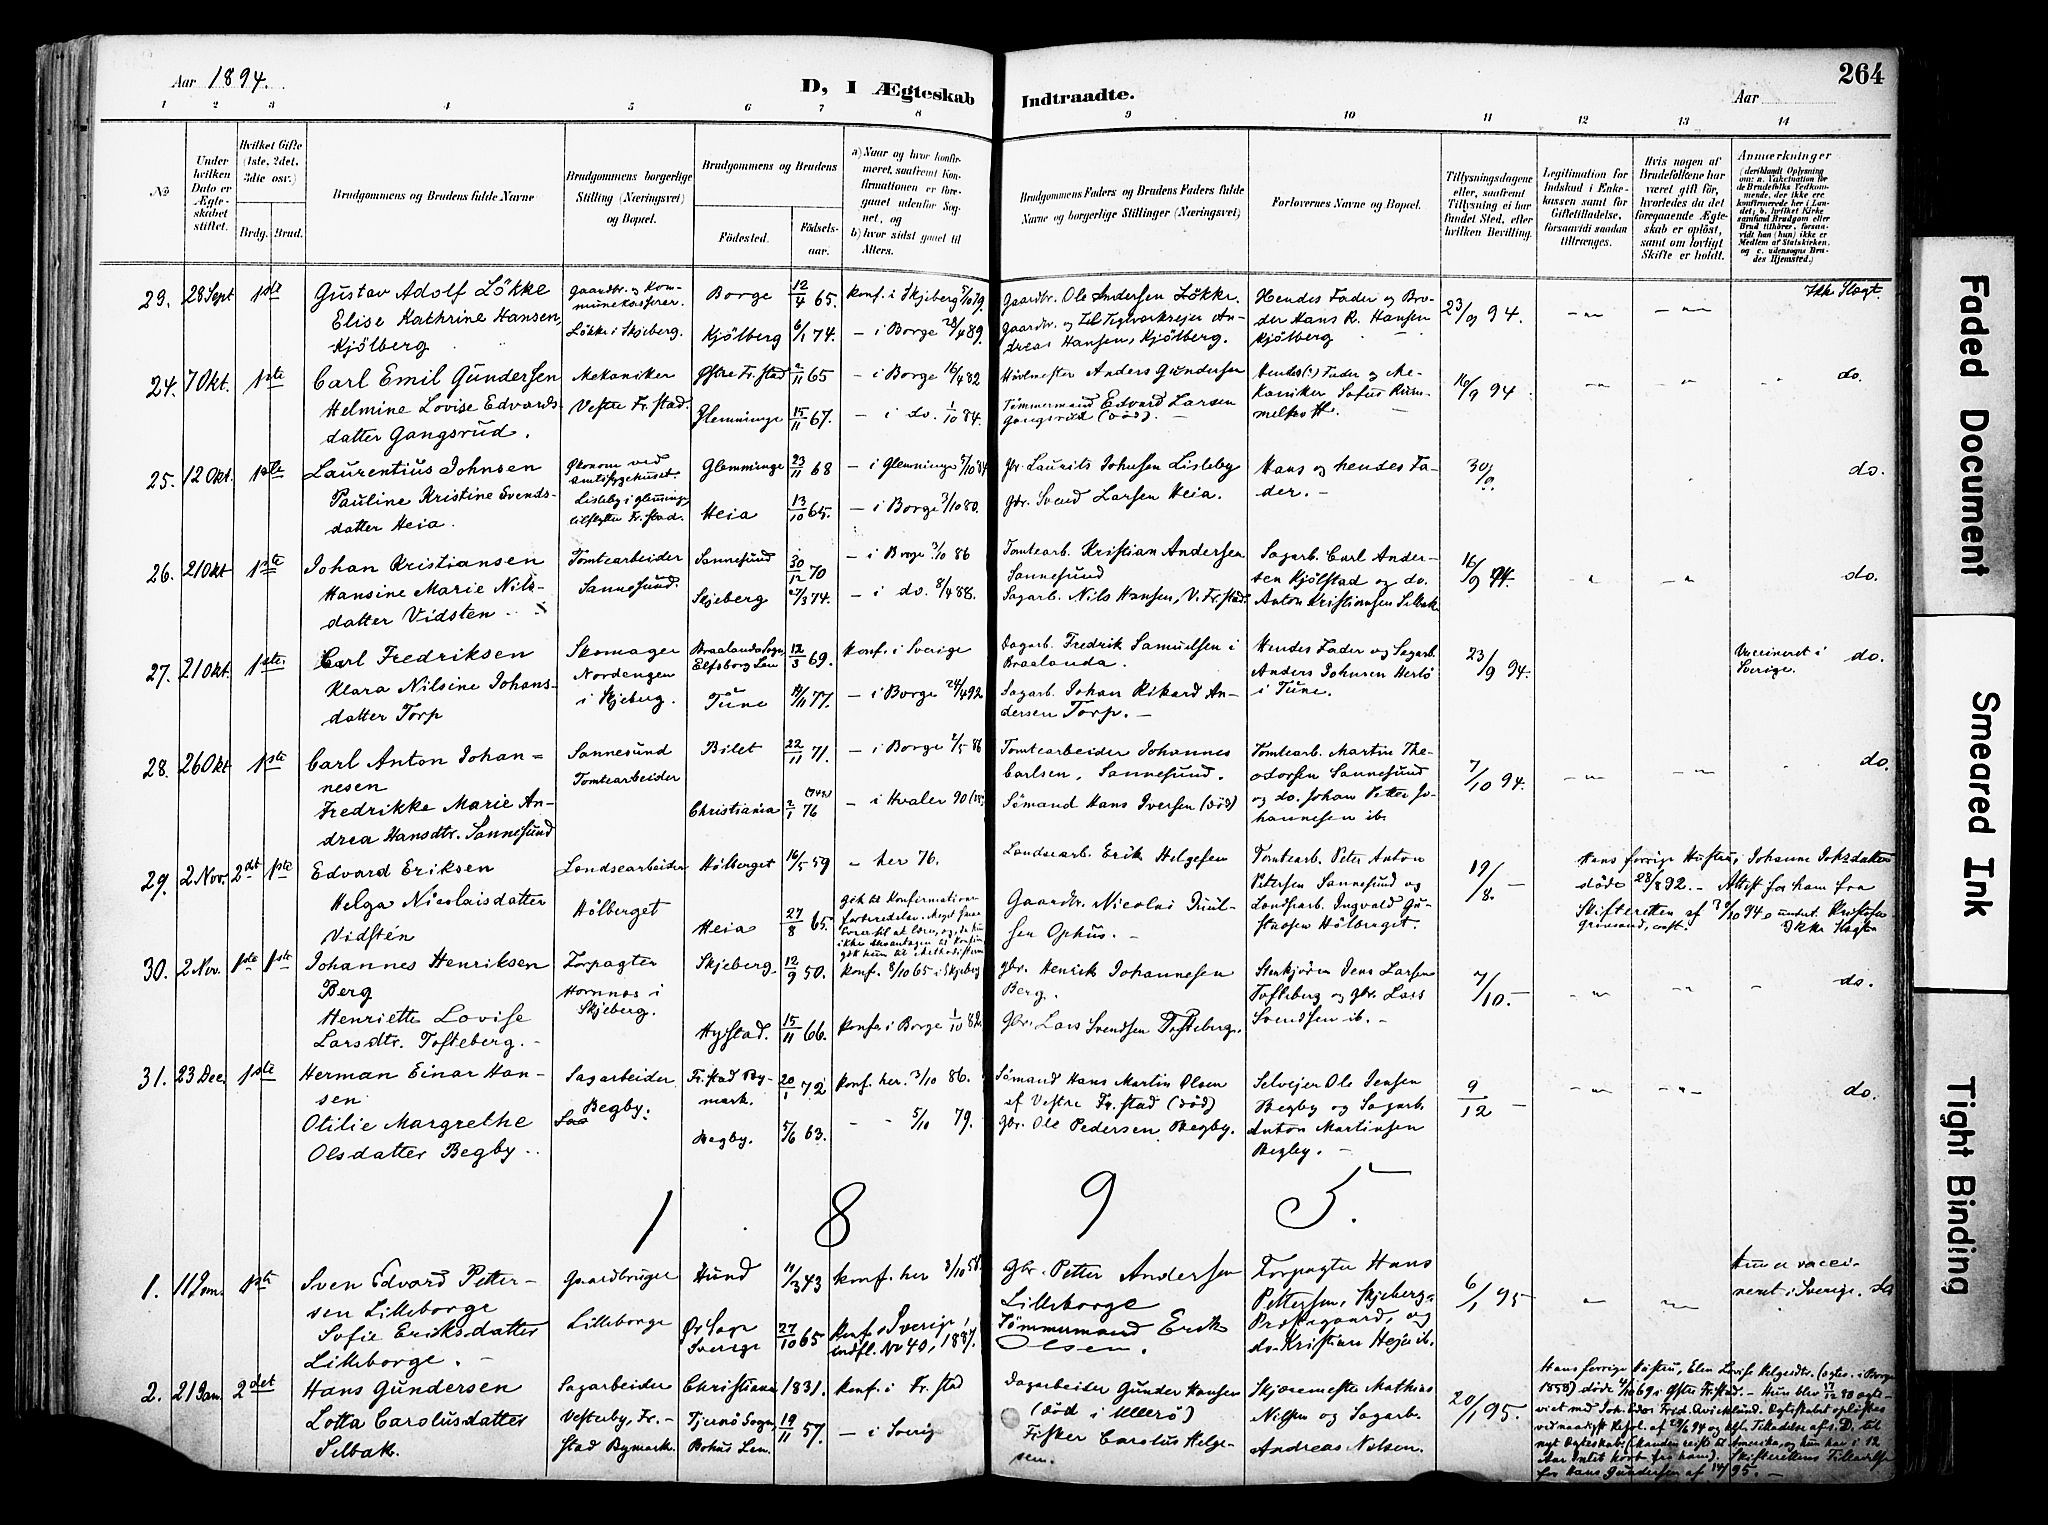 Aar 1894.
D, I Ægteskab Indtraadte.
Aar
264
1 2 3 4 5 6 7 8 9 10 11 12 13 14
No
Under hvilken Dato er Ægteskabet stiftet.
Hvilket Gifte (1ste, 2det, 3die osv.)
Brdg. Brud.
Brudgommens og Brudens fulde Navne
Brudgommens borgerlige Stilling (Næringsvei) og Bopæl.
Brudgommens og Brudens
Fødested.
Fødselsaar.
a) Naar og hvor konfirmeret, saafremt Konfirmationen er foregaaet udenfor Sognet, og
b) hvor sidst gaaet til Alters.
Brudgommens Faders og Brudens Faders fulde Navne og borgerlige Stillinger (Næringsvei)
Forlovernes Navne og Bopæl.
Tillysningsdagene eller, saafremt Tillysning ei har fundet Sted, efter hvilken Bevilling.
Legitimation for Indskud i Enkekassen samt for Giftetilladelse, forsaavidt saadan tiltrænges.
Hvis nogen af Brudefolkene har været gift før, hvorledes da det foregaaende Ægteskab er opløst, samt om lovligt Skifte er holdt.
Anmærkninger
(deriblandt Oplysning om: a. Vakcination for de Brudefolks Vedkommende, der ikke ere konfirmerede her i Landet; b. hvilket Kirkesamfund Brudgom eller Brud tilhører, forsaavidt han (hun) ikke er Medlem af Statskirken, og c. udensogns Brudes Hjemsted.)
29. 28 Sept 1ste
Gustav Adolf Løkke
Elise Kathrine Hansen,
Kjölberg
Gaardbr. og Kommunekasserer.
Løkke i Skjeberg.
Borge 12/4 65. Konf. i Skjeberg 5/10 79.
Kjölberg 6/1 74. – i Borge 28/4 89.
Gaardbr. Ole Andersen Løkke.
Gaardbr. og Teglverkseier Andreas Hansen, Kjölberg.
Hendes Fader og Broder Hans R. Hansen Kjölberg
23/9 94.
Ikke Slægt.
24. 7 Okt. 1ste
Carl Emil Gundersen
Helmine Lovise Edvardsdatter Gangsrud.
Mekaniker
Vestre Fr.stad.
Østre Fr.stad 2/11 65 – i Borge 16/4 82
Glemminge 15/11 67. – i do. 1/10 84.
Anders Gundersen
Tömmermand Edvard Larsen Gangsrud (död).
Hendes Fader og Mekaniker Sofus
16/9 94
do.
25. 12 Okt. 1ste
Laurentius Johnsen
Pauline Kristine Svendsdatter Heia.
Økonom ved Amtssygehuset.
Lisleby i Glemminge, tilflytter Fr.stad.
Glemminge 23/11 68 – i Glemminge 5/10 84
Heia 13/10 65. – i Borge 3/10 80.
Gbr. Laurits Johnsen Lisleby
Gbr. Svend Larsen Heia.
Hans og hendes Fader. –
30/9.
do.
26. 21 Okt 1ste
Johan Kristiansen
Hansine Marie Nilsdatter Vidsten
Tomtearbeider
Sannesund.
Sannesund 30/12 70 – i Borge 3/10 86
Skjeberg 27/3 74. – i do. 8/4 88.
Tomtearb. Kristian Andersen Sannesund
Sagarb. Nils Hansen, V. Fr.stad.
Sagarb. Carl Andersen Kjölstad og do. Anton Kristiansen Selbak
16/9 94.
do.
27. 21 Okt. 1ste
Carl Fredriksen
Klara Nilsine Johansdatter Torp
Skomager
Nordengen i Skjeberg.
Braalanda Sogn, Elfsborg Len 12/3 69. Konf. i Sverige
Tune 19/11 77. – i Borge 24/4 92
Dagarb. Fredrik Samuelsen i Braalanda.
Sagarb. Johan Rikard Andersen Torp. –
Hendes Fader og Sagarb. Anders Johnsen i Tune.
23/9 94.
Vaccineret i Sverige.
do.
28. 26 Okt 1ste
Carl Anton Johannesen
Fredrikke Marie Andrea Hansdtr. Sannesund
Sannesund
Tomtearbeider
Bilet 22/11 71. – i Borge 2/5 86
Christiania 2/1 76 – i Hvaler 90
Tomtearbeider Johannes Carlsen, Sannesund.
Sömand Hans Iversen (död)
Tomtearb. Martin Theodorsen Sannesund og do. Johan Petter Johannesen ib.
7/10 94.
do.
29. 2 Nov. 2det 1ste
Edvard Eriksen
Helga Nicolaisdatter
Vidstén
Londsearbeider
Hölberget
Hölberget 16/5 59 – her 76.
Heia 27/8 65.
Londsearb. Erik Helgesen
Gaardbr. Nicolai Ophus. –
Tomtearb. Peter Anton Petersen Sannesund og Londsearb. Ingvald Gustavsen Hölberget.
19/8. –
Hans forrige Hustru, Johanne
döde 28/8 92. – Attest for ham fra
Skifteretten af
Ikke Slægt
30. 2 Nov. 1ste 1ste
Johannes Henriksen Berg
Henriette Lovise Larsdtr. Tofteberg. –
Forpagter
Hornnes i Skjeberg.
Skjeberg 12/9 50. Konf. 8/10 65 i Skjeberg
15/11 66. Konf. i Borge 1/10 82
Gbr. Henrik Johannesen Berg.
Gbr. Lars Svendsen Tofteberg.
Jens Larsen Tofteberg og Gbr. Lars Svendsen ib. –
7/10. –
do.
31. 23 Dec. 1ste
Herman Einar Hansen
Otilie Margrethe Olsdatter Begby
Sagarbeider
Begby.
Fr.stad Bymark. 20/1 72 Konf. her. 3/10 86.
Begby. 5/6 63. – 5/10 79.
Sömand Hans Martin Olsen af Vestre Fr.stad (död)
Gbr. Ole Pedersen Begby.
Selveier Ole Jensen Begby og Sagarb. Anton Martinsen Begby. –
9/12 –
do.
1 8 9 5.
1. 11 Jan. 1ste
Sven Edvard Pettersen Lilleborge
Sofie Eriksdatter Lilleborge. –
Gaardbruger
Lilleborge
Hund 11/3 43 Konf. her 3/10 58
Sverige 27/10 65 Konf. i Sverige, indfl. No 40, 1887.
Gbr. Petter Andersen Lilleborge
Tömmermand Erik Olsen.
Forpagter Hans Pettersen, Skjeberg Præstegaard, og do. Kristian Heje ib.
6/1 95
Hun er vaccineret i Sverige. do
2. 21 Jan. 2det
Hans Gundersen
Lotta Carolusdatter
Selbak.
Sagarbeider
Vesterby, Fr.stad Bymark.
Christiania 1831. Konf. i Fr.stad
Tjernö Sogn, Bohus Len. 19/11 57. – i Sverig
Dagarbeider Gunder Hansen (död i Ullerö)
Fisker Carolus Helgesen.
Skjæremester Mathias Nilsen og Sagarb. Andreas Nilsen.
20/1 95.
Hans forrige Hustru, Elen Lovise Helgesdtr. (egtev. i Borge 1858) döde 4/10 69 i Østre Fr.stad. – Hun blev 17/12 80 egteviet med Joh. Fred. Qvicklund. Egteskabet oplöstes ved naadigst Resol. af 29/6 94 og Tilladelse af s. D. til nyt Egteskab. (Manden reiste til Amerika, og hun har i 12 Aar intet hört fra ham). Skifterettens Tilladelse for Hans Gundersen af 14/1 95. –
Faded Document
Smeared Ink
Tight Binding